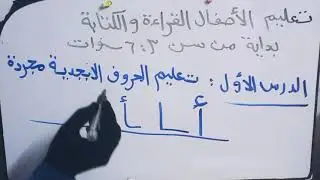 تعليم الأطفال القراءة والكتابة
بداية من سن ٣: ٦ سنوات
الدرس الأول: تعليم الحروف الأبجدية مجردة
أ ـأ ـأ